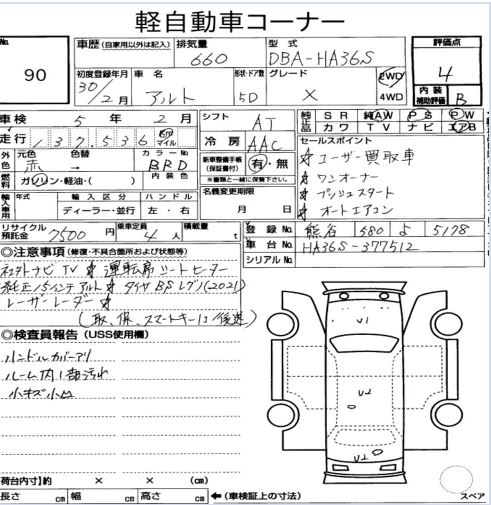 軽自動車コーナー
No.
90
車歴 (自家用以外は記入)
排気量
660
型式
DBA-HA36S
評価点
4
初度登録年月
30/2月
車名
アルト
形状・ドア数
5D
グレード
X
2WD
4WD
内装
補助評価
B
車検 5年 2月
シフト
AT
純正品
SR 純AW PS PW
カワ TV ナビ エアB
走行 137,536 Km マイル
冷房
AAC
セールスポイント
外色
元色 色替
赤 →
カラーNo.
BRD
新車整備手帳
(保証書付)
有・無
※書類と一緒に保管下さい。
☆ユーザー買取車
☆ワンオーナー
☆プッシュスタート
☆オートエアコン
燃料
ガソリン・軽油・( )
内装色
名義変更期限
月 日
輸入車用
年式
輸入区分
ディーラー・並行
ハンドル
左・右
登録No. 熊谷 580 よ 5178
リサイクル
預託金 7500円
乗車定員
4人
積載量
t
車台No. HA36S-377512
シリアルNo.
◎注意事項 (修復・不具合箇所および状態等)
社外ナビTV ☆ 運転席シートヒーター
純正15インチアルミ ☆ タイヤBSレグノ(2021)
レーザーレーダー ☆
(取、保、スマートキー1コ後送)
◎検査員報告 (USS使用欄)
ハンドルカバーアリ
ルーム内1部汚れ
小キズ小凹
U1
U2
U2
荷台内寸)約 × × (cm)
長さ cm 幅 cm 高さ cm ←(車検証上の寸法)
スペア